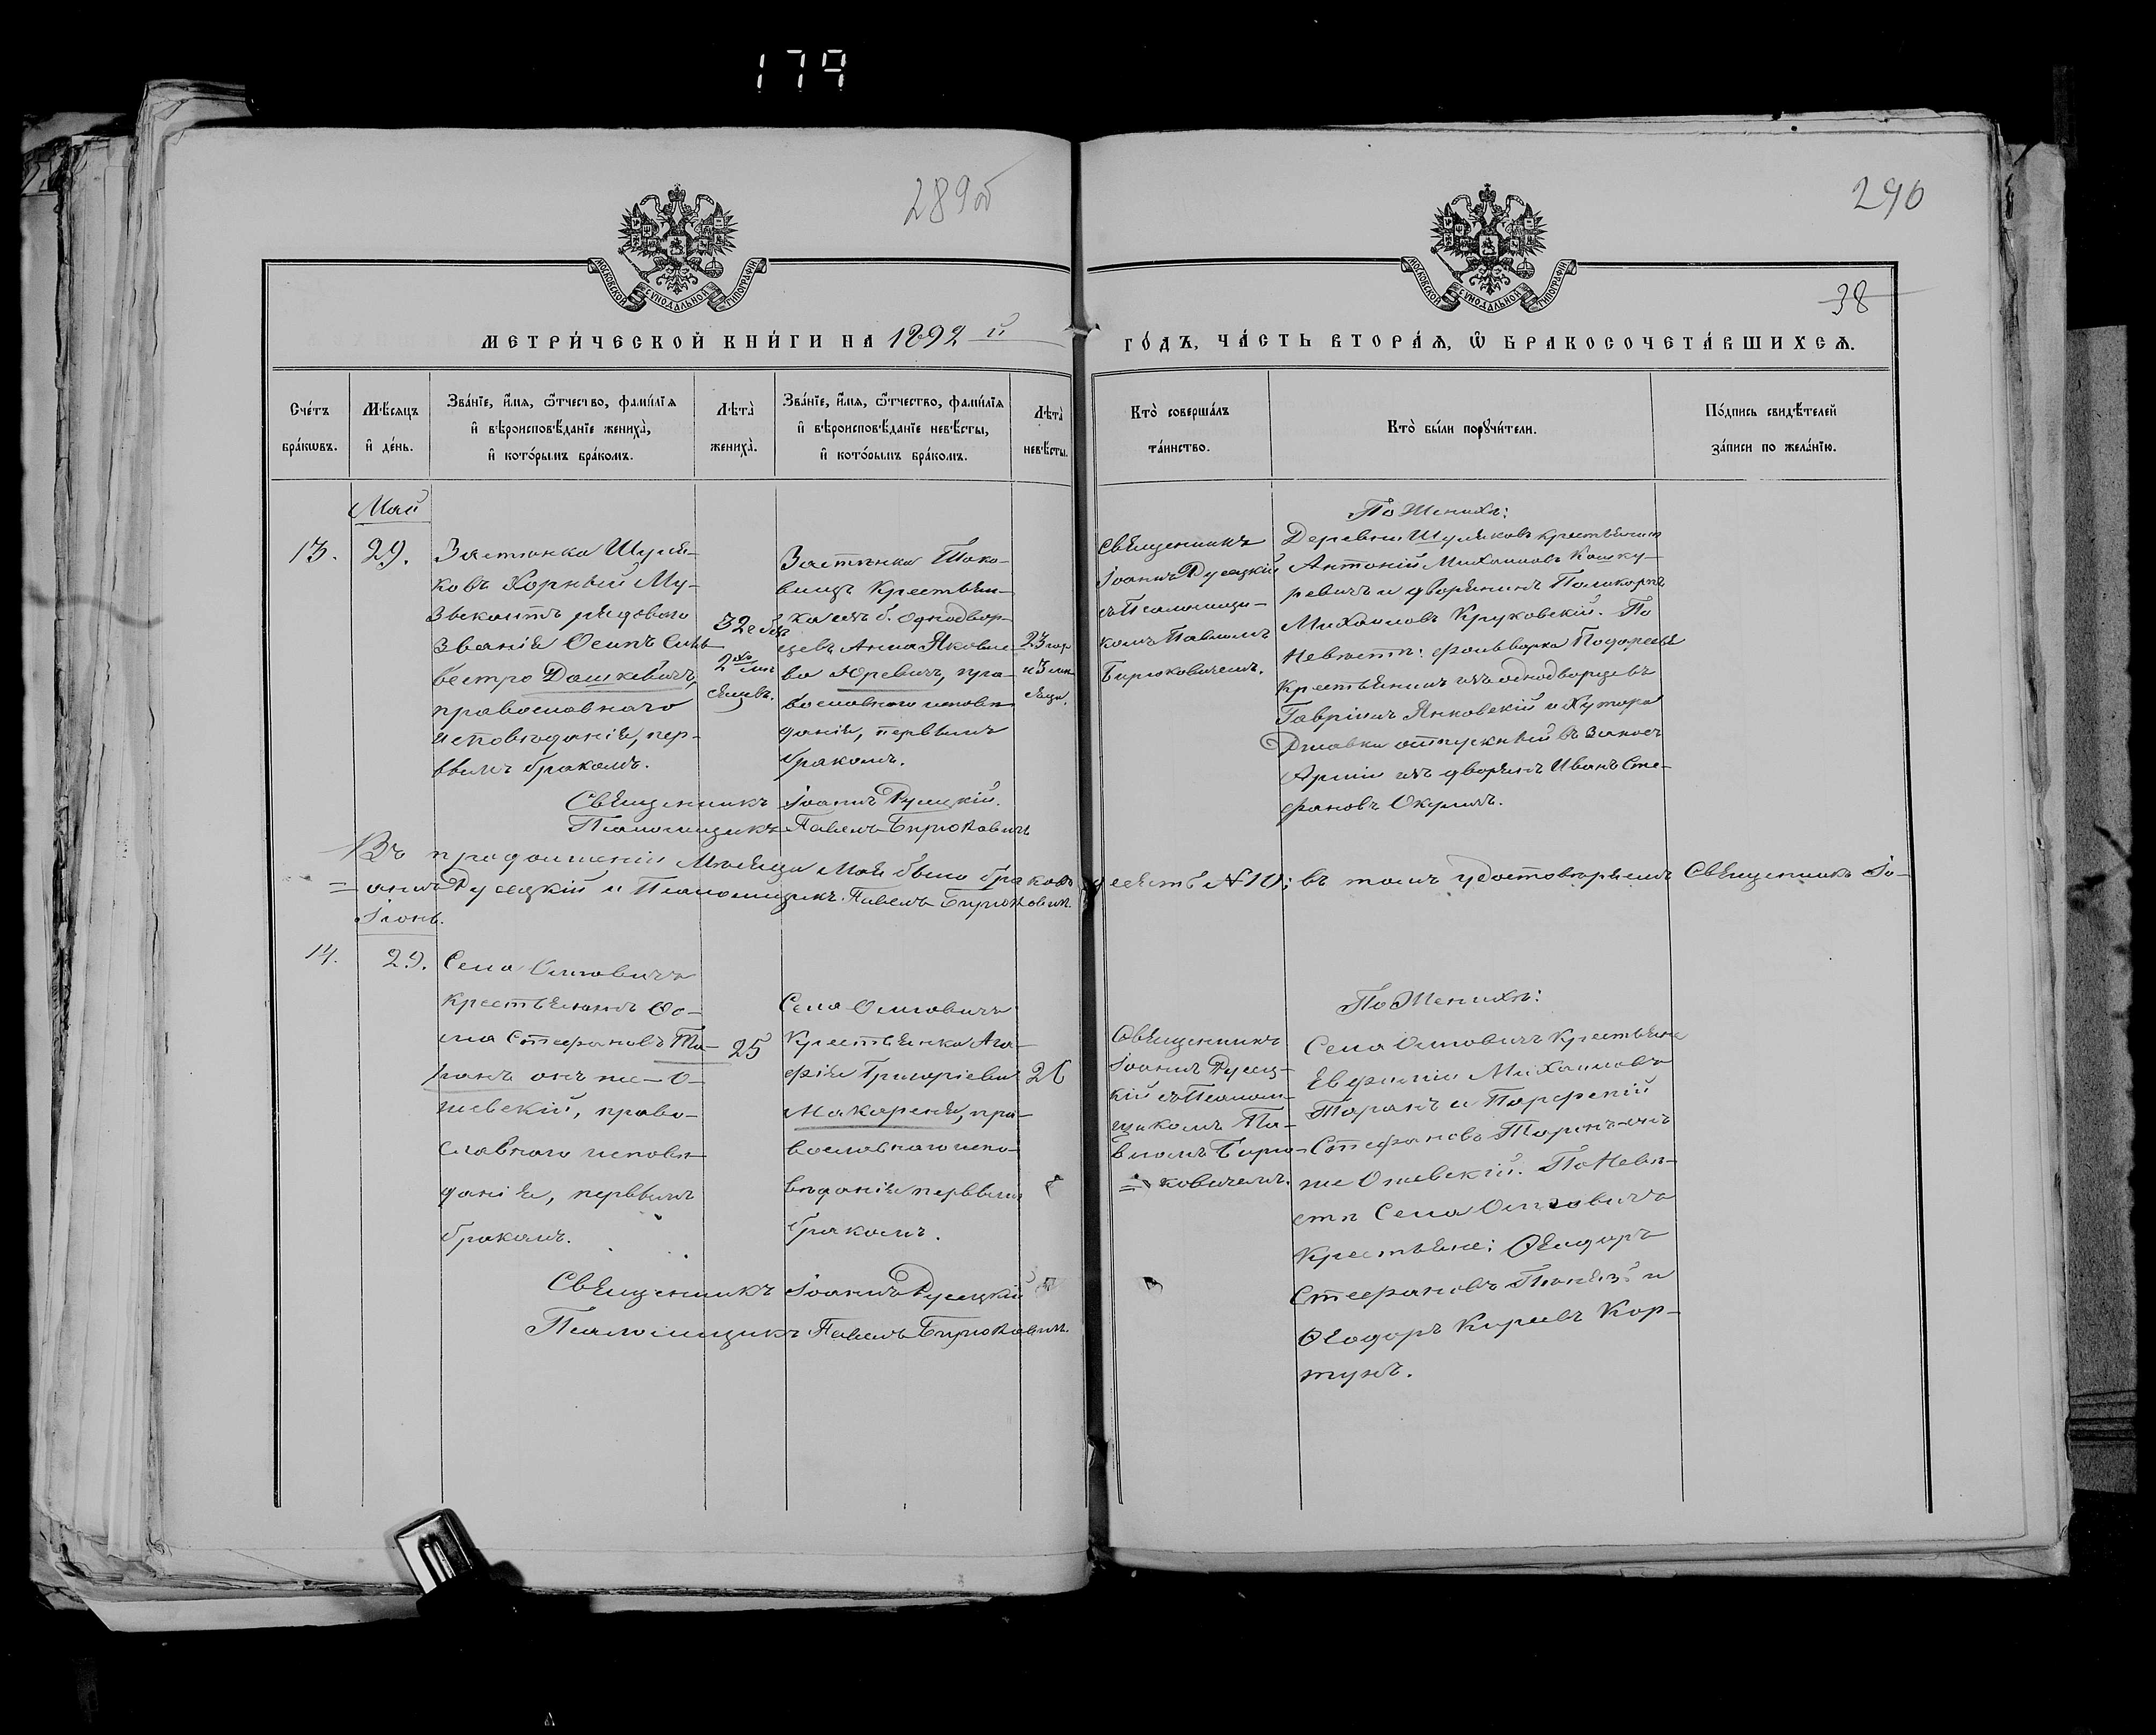 179
289об
290
38
МОСКОВСКОЙ СѴНОДАЛЬНОЙ ТИПОГРАФІИ
МОСКОВСКОЙ СѴНОДАЛЬНОЙ ТИПОГРАФІИ
МЕТРИ́ЧЕСКОЙ КНИ́ГИ НА 1892 й
ГО́ДЪ, ЧА́СТЬ ВТОРА́Ѧ, Ѡ҆ БРАКОСОЧЕТА́ВШИХСѦ.
Сче́тъ
бра́кѡвъ.
Мѣ́сяцъ
и҆ де́нь.
Зва́нїе, и҆́мѧ, ѻ҆́тчество, фами́лїѧ
и҆ вѣроисповѣ́данїе жениха̀,
и҆ кото́рымъ бра́комъ.
Лѣта̀
жениха̀.
Зва́нїе, и҆́мѧ, ѻ҆́тчество, фами́лїѧ
и҆ вѣроисповѣ́данїе невѣ́сты,
и҆ кото́рымъ бра́комъ.
Лѣта̀
невѣ́сты.
Кто̀ соверша́лъ
та́инство.
Кто̀ бы́ли порꙋчи́тели.
По́дпись свидѣ́телей
за́писи по жела́нїю.
Май
13.
29.
Застѣнка Шуля-
ковъ Хорный Му-
зыкантъ рядового
званія Осипъ Силь-
вестро Дашкевичъ,
православнаго
исповѣданія, пер-
вымъ бракомъ.
32
2
сяцевъ.
Застѣнка
вищъ Крестьян-
ка изъ б. однодвор-
цевъ Анна Яковле-
ва Юревичъ, пра-
вославнаго исповѣ
данія, первымъ
бракомъ.
23 год
и 3 мѣ
сяца.
Священникъ
Іоаннъ Русецкій
съ Псаломщи-
комъ Павломъ
Бирюковичемъ.
По Женихѣ:
Деревни Шуляковъ крестьянин
Антоній Михаиловъ Кошку-
ревичъ и дворянинъ Поликарпъ
Михаиловъ Круковскій. По
Невѣстѣ: фольварка
Крестьянинъ изъ однодворцевъ
Гавріилъ Янковскій и Хутора
отпускный въ Запасъ
Арміи изъ дворянъ Иванъ Сте-
фановъ
Священникъ Іоаннъ Русецкій.
Псаломщикъ Павелъ Бирюковичъ
Въ продолженіи Мѣсяца Мая было браковъ десять №10; въ томъ удостовѣряемъ Священникъ Іо-
аннъ Русецкій и Псаломщикъ Павелъ Бирюковичъ.
Іюнь.
14.
29.
Села Омговичъ
Крестьянинъ Ѳо-
ма Стефановъ Та-
ранъ онъ же О-
шевскій, право-
славнаго исповѣ-
данія, первымъ
бракомъ.
25
Села Омговичъ
Крестьянка Ага-
фія Григоріева
Макареня, пра-
вославнаго испо-
вѣданія первымъ
бракомъ.
21
Священникъ
Іоаннъ Русец-
кій съ Псалом-
щикомъ Па-
вломъ Бирю-
ковичемъ.
По Женихѣ:
Села Омговичъ Крестьяне
Евфимій Михаиловъ
Таранъ и Парфеній
Стефановъ Таранъ-онъ
же Ошевскій. По Невѣ-
стѣ Села Омговичъ
Крестьяне: Ѳеодоръ
Стефановъ и
Ѳеодоръ Кор-
тунъ.
Священникъ Іоаннъ Русецкій
Псаломщикъ Павелъ Бирюковичъ.